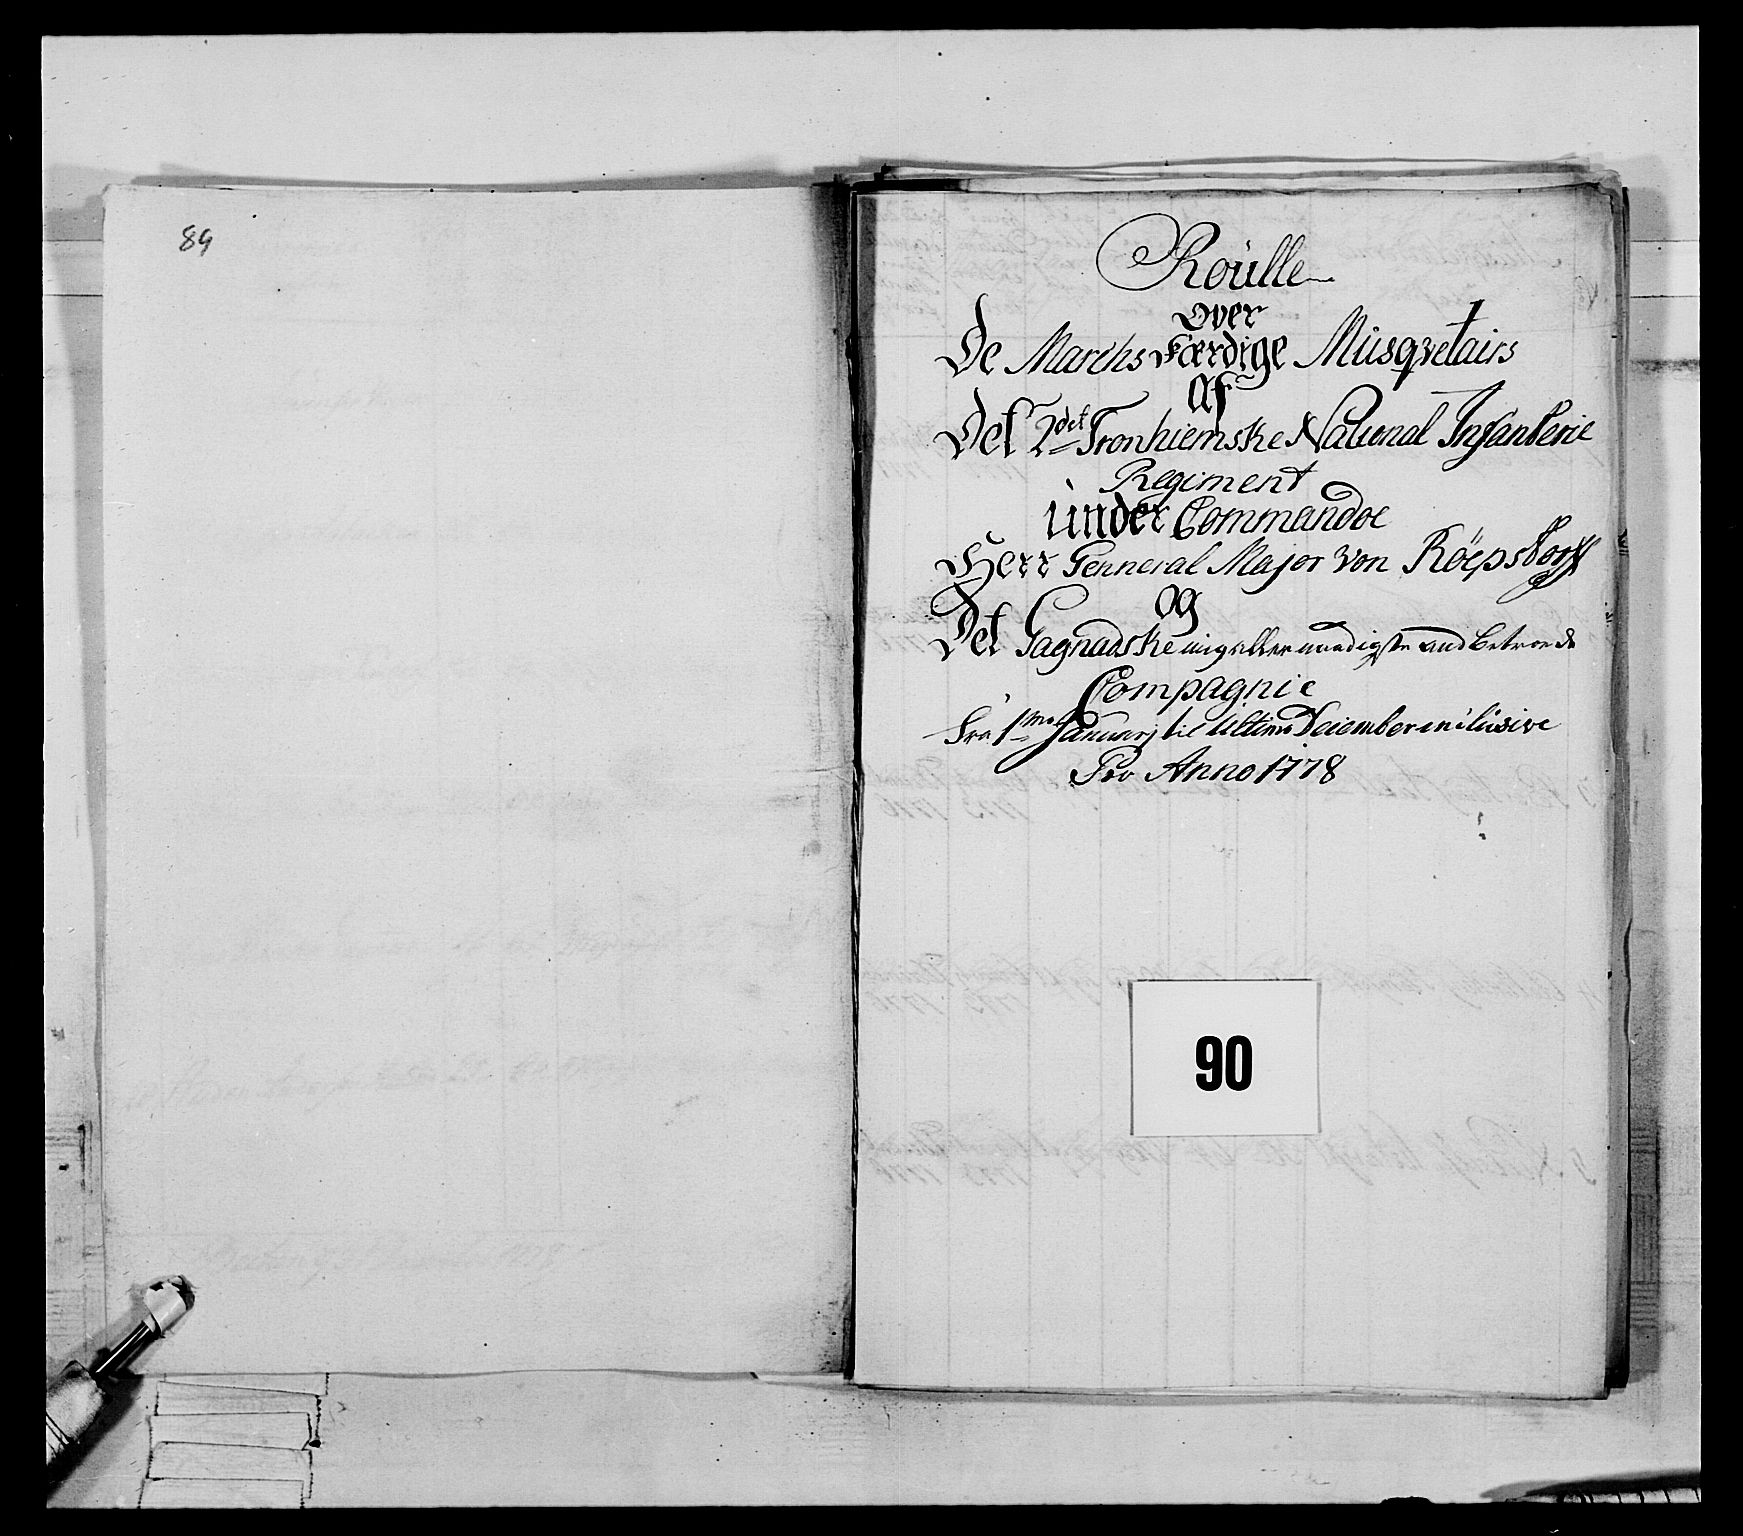 89
Roülle
over
De Marchs Færdige Müsqvetairs
Af
Det 2det Tronhiemske National Infanterie
Regiment
ünder Commandoe
Herr Genneral Major von Röepstorff
Og
Det Gagnadske mig allernaadigste and betroede
Compagnie
Fra 1mo Januarj til Ultimo December inclüsive
Pro Anno 1778
90